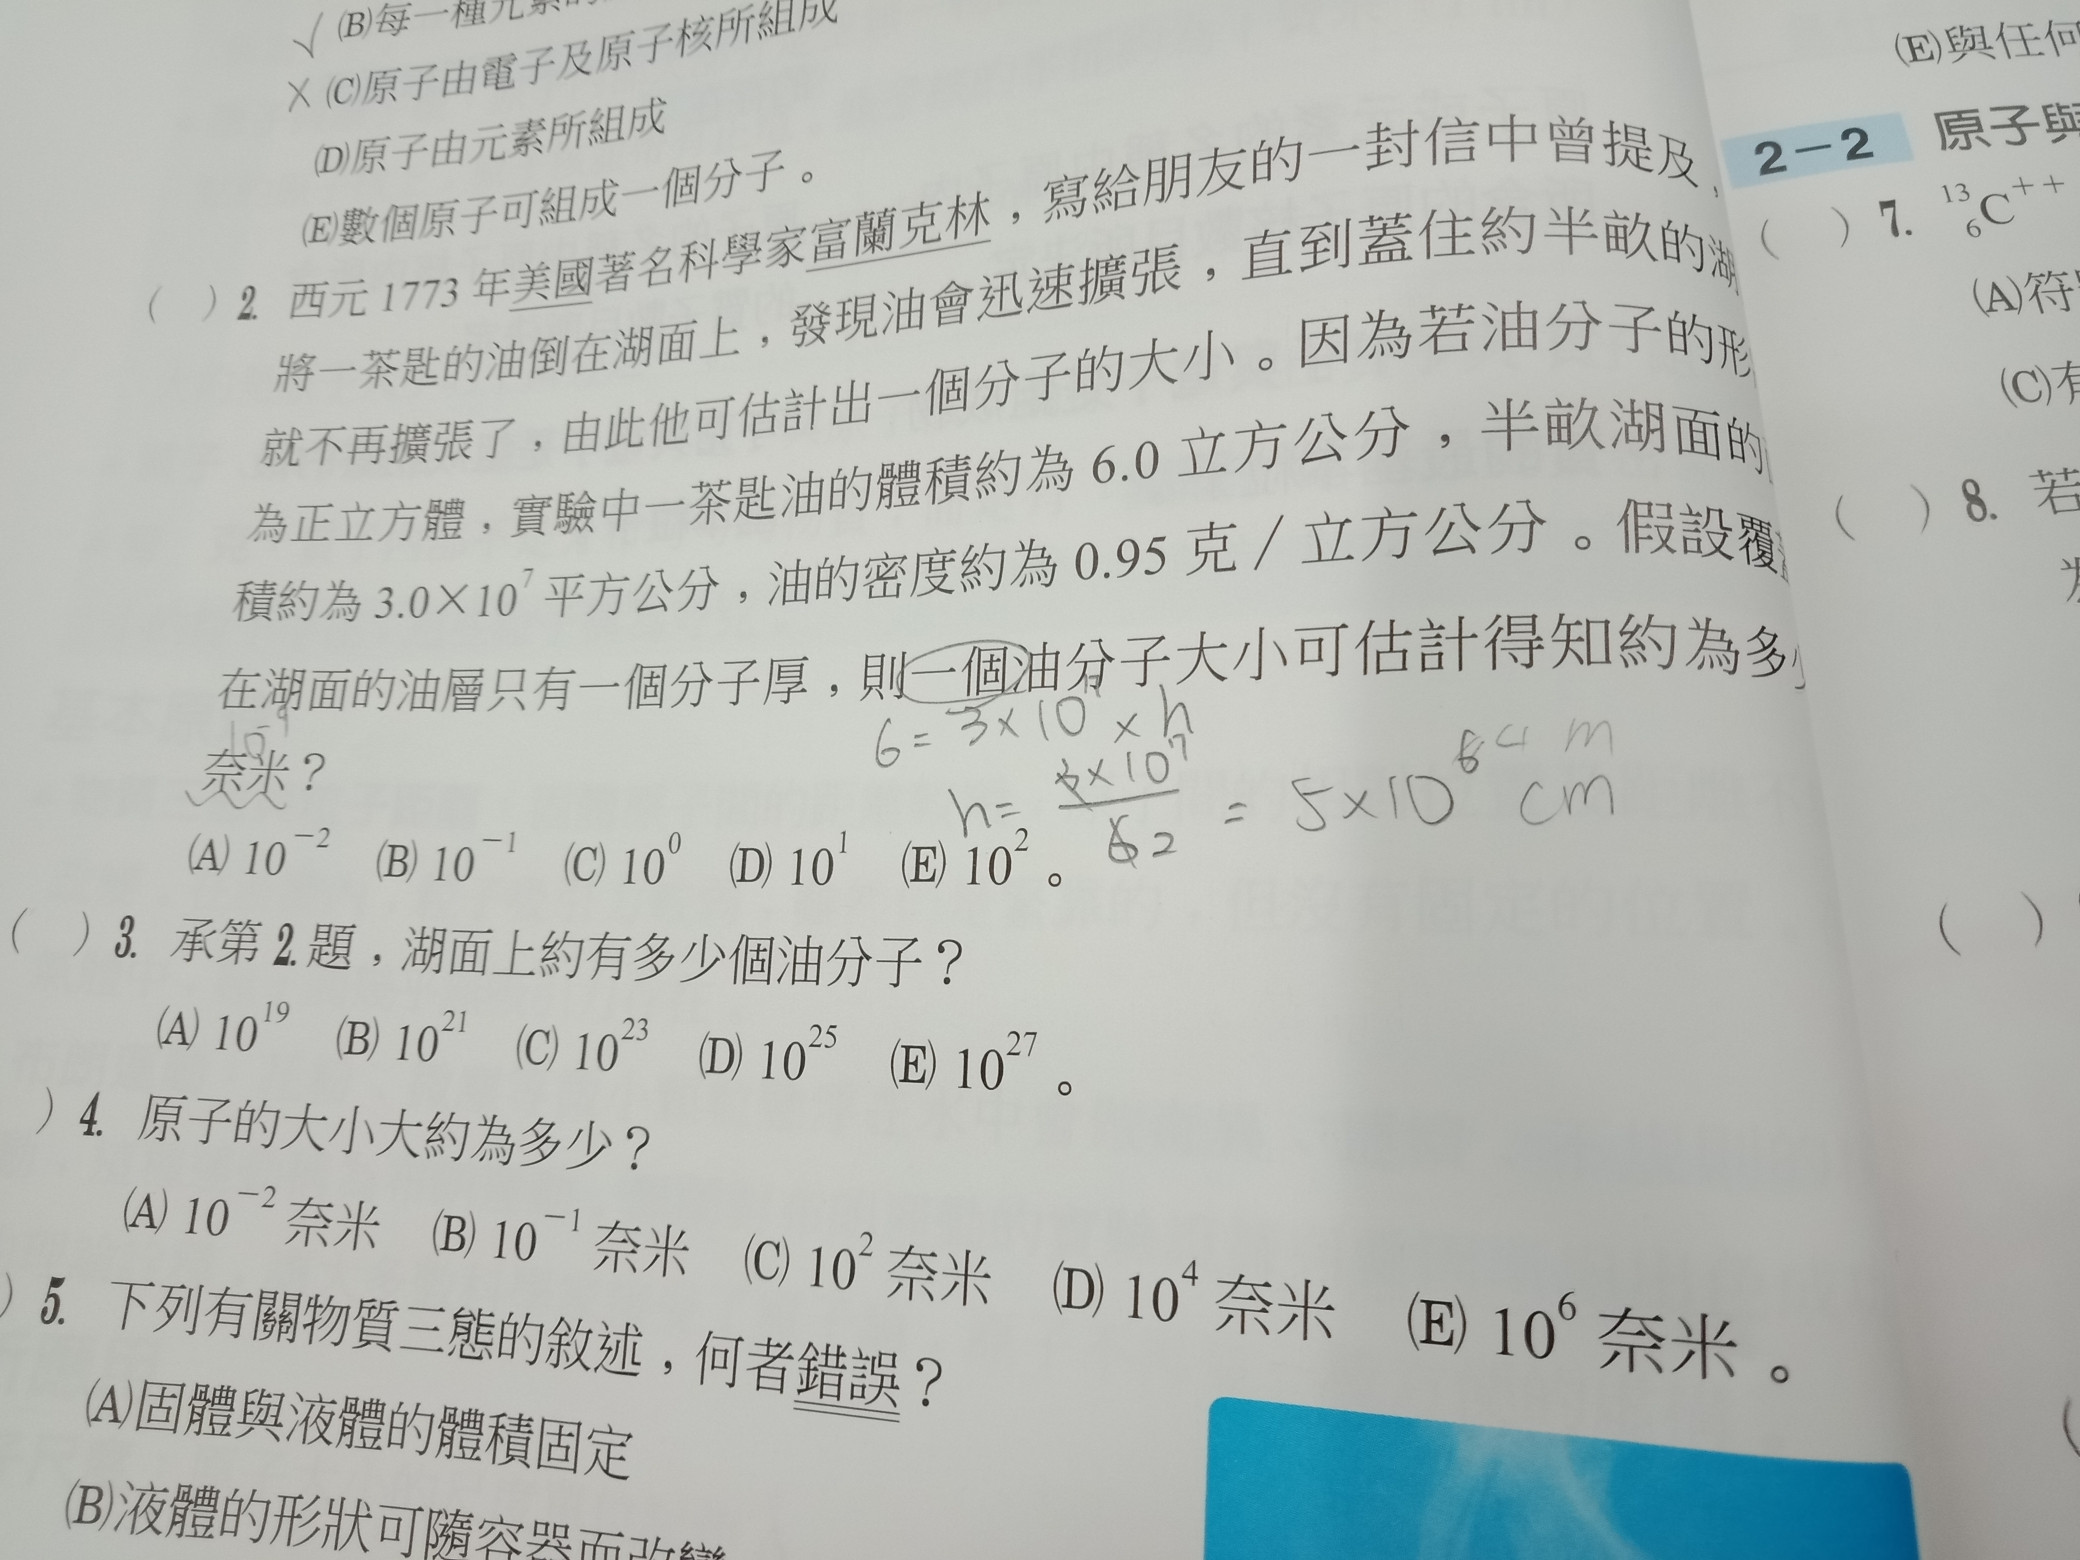 (B)每一種元素的
(C)原子由電子及原子核所組成
(D)原子由元素所組成
(E)數個原子可組成一個分子。
( ) 2. 西元 1773 年美國著名科學家富蘭克林，寫給朋友的一封信中曾提及，
將一茶匙的油倒在湖面上，發現油會迅速擴張，直到蓋住約半畝的湖
就不再擴張了，由此他可估計出一個分子的大小。因為若油分子的形
為正立方體，實驗中一茶匙油的體積約為 6.0 立方公分，半畝湖面的
積約為 3.0×10⁷ 平方公分，油的密度約為 0.95 克／立方公分。假設覆
在湖面的油層只有一個分子厚，則一個油分子大小可估計得知約為多
6 = 3×10⁷ × h
10⁻⁹
奈米？
h = ×10⁷ / 2 = 5×10 cm
m
(A) 10⁻² (B) 10⁻¹ (C) 10⁰ (D) 10¹ (E) 10²。
( ) 3. 承第 2. 題，湖面上約有多少個油分子？
(A) 10¹⁹ (B) 10²¹ (C) 10²³ (D) 10²⁵ (E) 10²⁷。
) 4. 原子的大小大約為多少？
(A) 10⁻² 奈米 (B) 10⁻¹ 奈米 (C) 10² 奈米 (D) 10⁴ 奈米 (E) 10⁶ 奈米。
) 5. 下列有關物質三態的敘述，何者錯誤？
(A)固體與液體的體積固定
(B)液體的形狀可隨容器而改變
(E)與任何
2－2 原子與
( ) 7. ¹³₆C⁺⁺
(A)符
(C)有
( ) 8. 若
( )